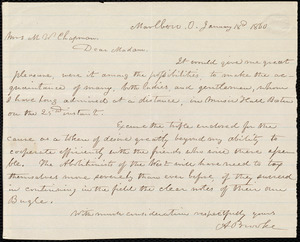 Marlboro. O. January 18th 1860.
Mrs M. W. Chapman
Dear Madam.
It would give me great
pleasure, were it among the possibilities, to make the ac-
quaintance of many, both ladies, and gentlemen, whom
I have long admired at a distance, in Music Hall Boston
on the 25th instant.
Excuse the trifle enclosed for the
cause as a token of desire greatly beyond my ability to
cooperate efficiently with the friends who will there assem-
ble. The Abolitionists of the West will have need to tax
themselves more severely than ever before, if they succeed
in continuing in the field the clear notes of their own
Bugle.
With much consideration respectfully yours
A Brooke